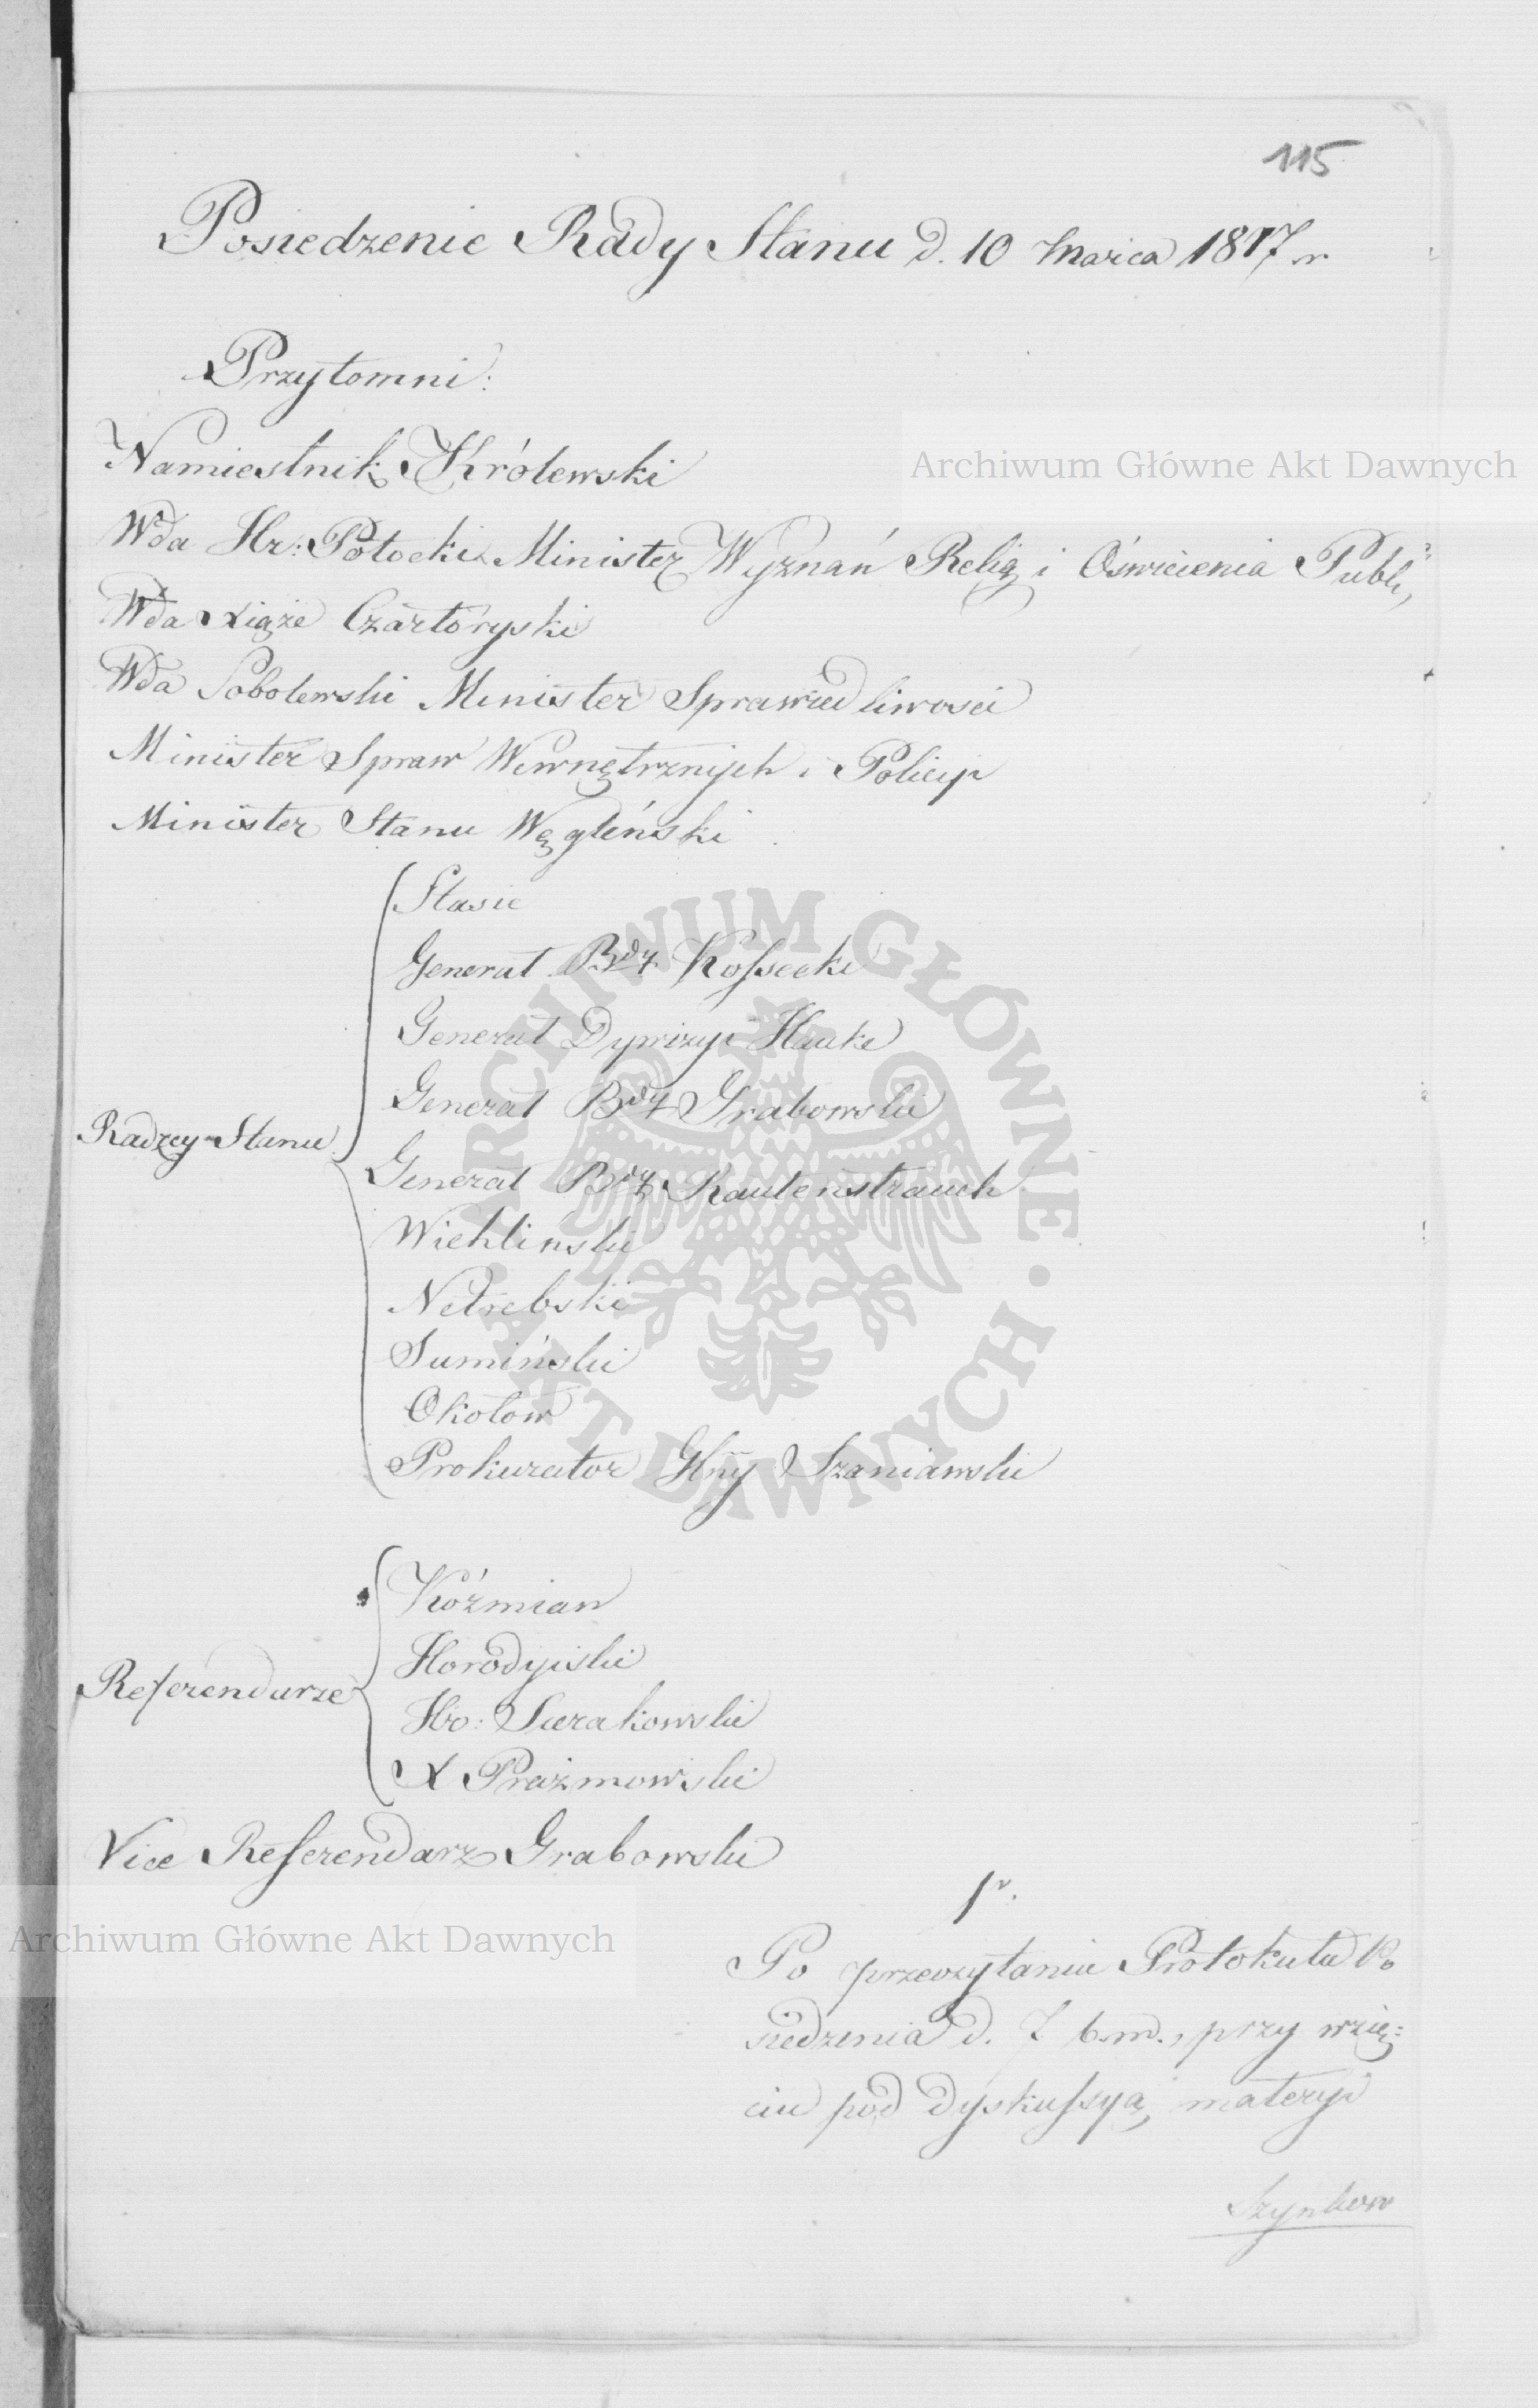 115
Posiedzenie Rady Stanu d. 10 Marca 1817 r.
Przytomni:
Namiestnik Królewski
Archiwum Główne Akt Dawnych
Wda Hr: Potocki Minister Wyznań Relig i Oświecienia Publ:
Wda Xiąże Czartoryski
Wda Sobolewski Minister Sprawiedliwosci
Minister Spraw Wewnętrznych i Policyi
Minister Stanu Węgleński
Radzcy Stanu
Stasic
Generał Bdy Kossecki
Generał Dywizyi Hauke
Generał Bdy Grabowski
Generał Bdy Rautenstrauch
Wichliński
Netrebski
Sumiński
Okołow
Prokurator Głny Szaniawski
ARCHIWUM GŁÓWNE · AKT DAWNYCH ·
Referendarze
Koźmian
Horodyiski
Hr: Sierakowski
X Prażmowski
Vice Referendarz Grabowski
Archiwum Główne Akt Dawnych
1o.
Po przeczytaniu Protokułu Po
siedzenia d. 7 b.m., przy wzię=
ciu pod dyskussyą, materyi
Szynków